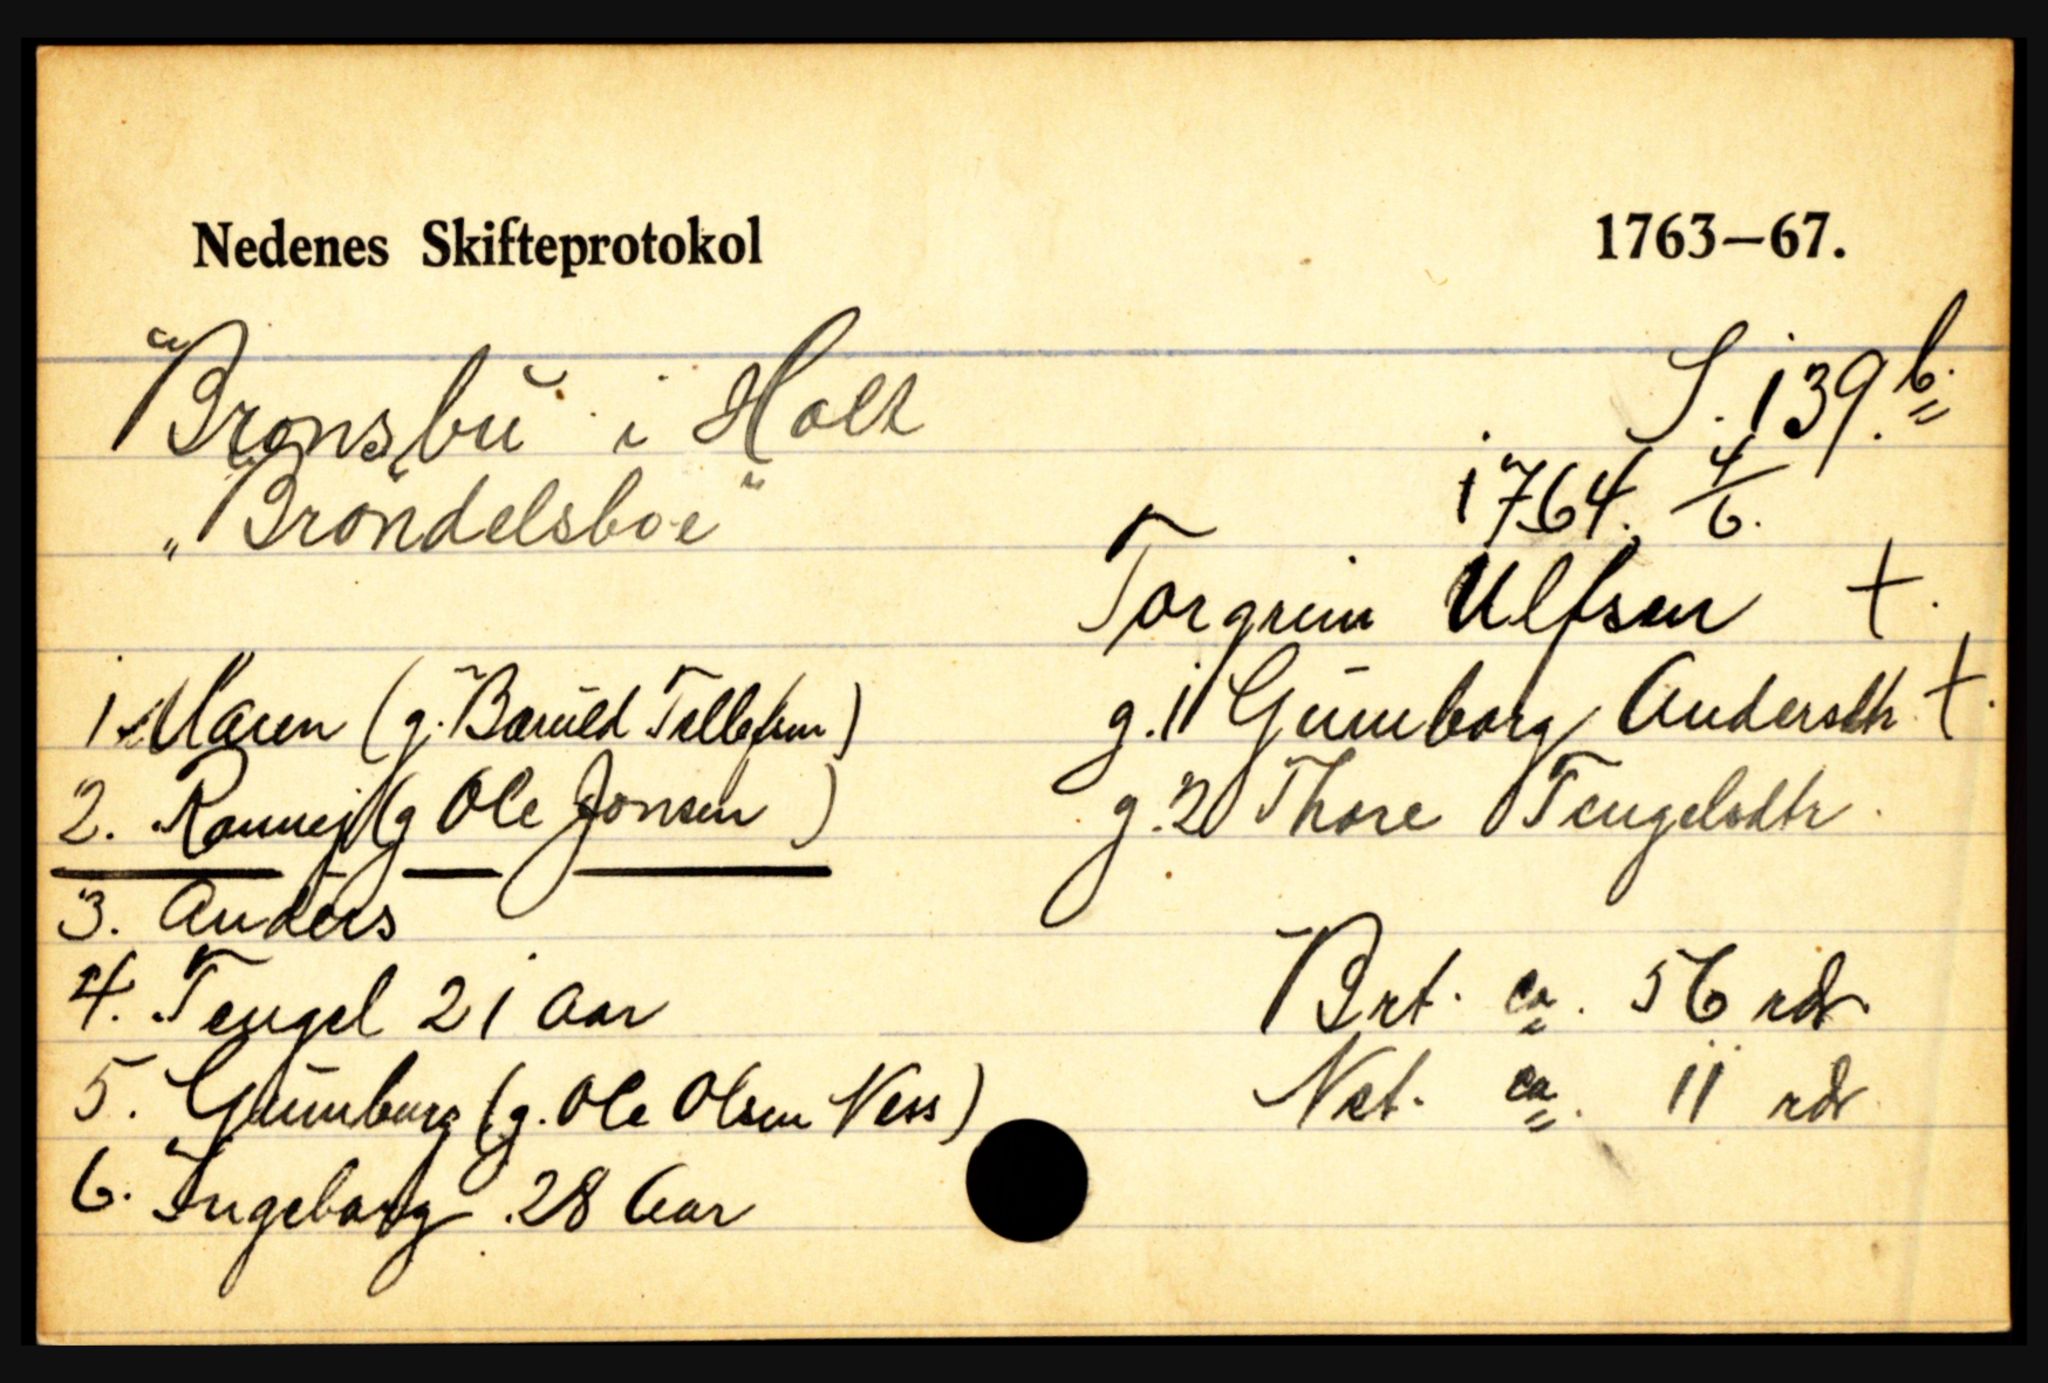 Nedenes Skifteprotokol 1763–67.
Bronsbu i Holt S. 139.b.
„Bröndelsboe" 1764. 4/6.
Torgrim Ulfsen +.
1. Maren (g. Baruld Tollefsen) g. 1 Gunnborg Andersdtr +.
2. Rannej (g Ole Jonsen) g. 2 Thore Tengelsdtr.
3. Anders
4. Tengel 21 aar Brt. ca. 56 rdr.
5. Gunnborg (g. Ole Olsen Ness) Net. ca. 11 rdr
6. Ingeborg 28 Aar